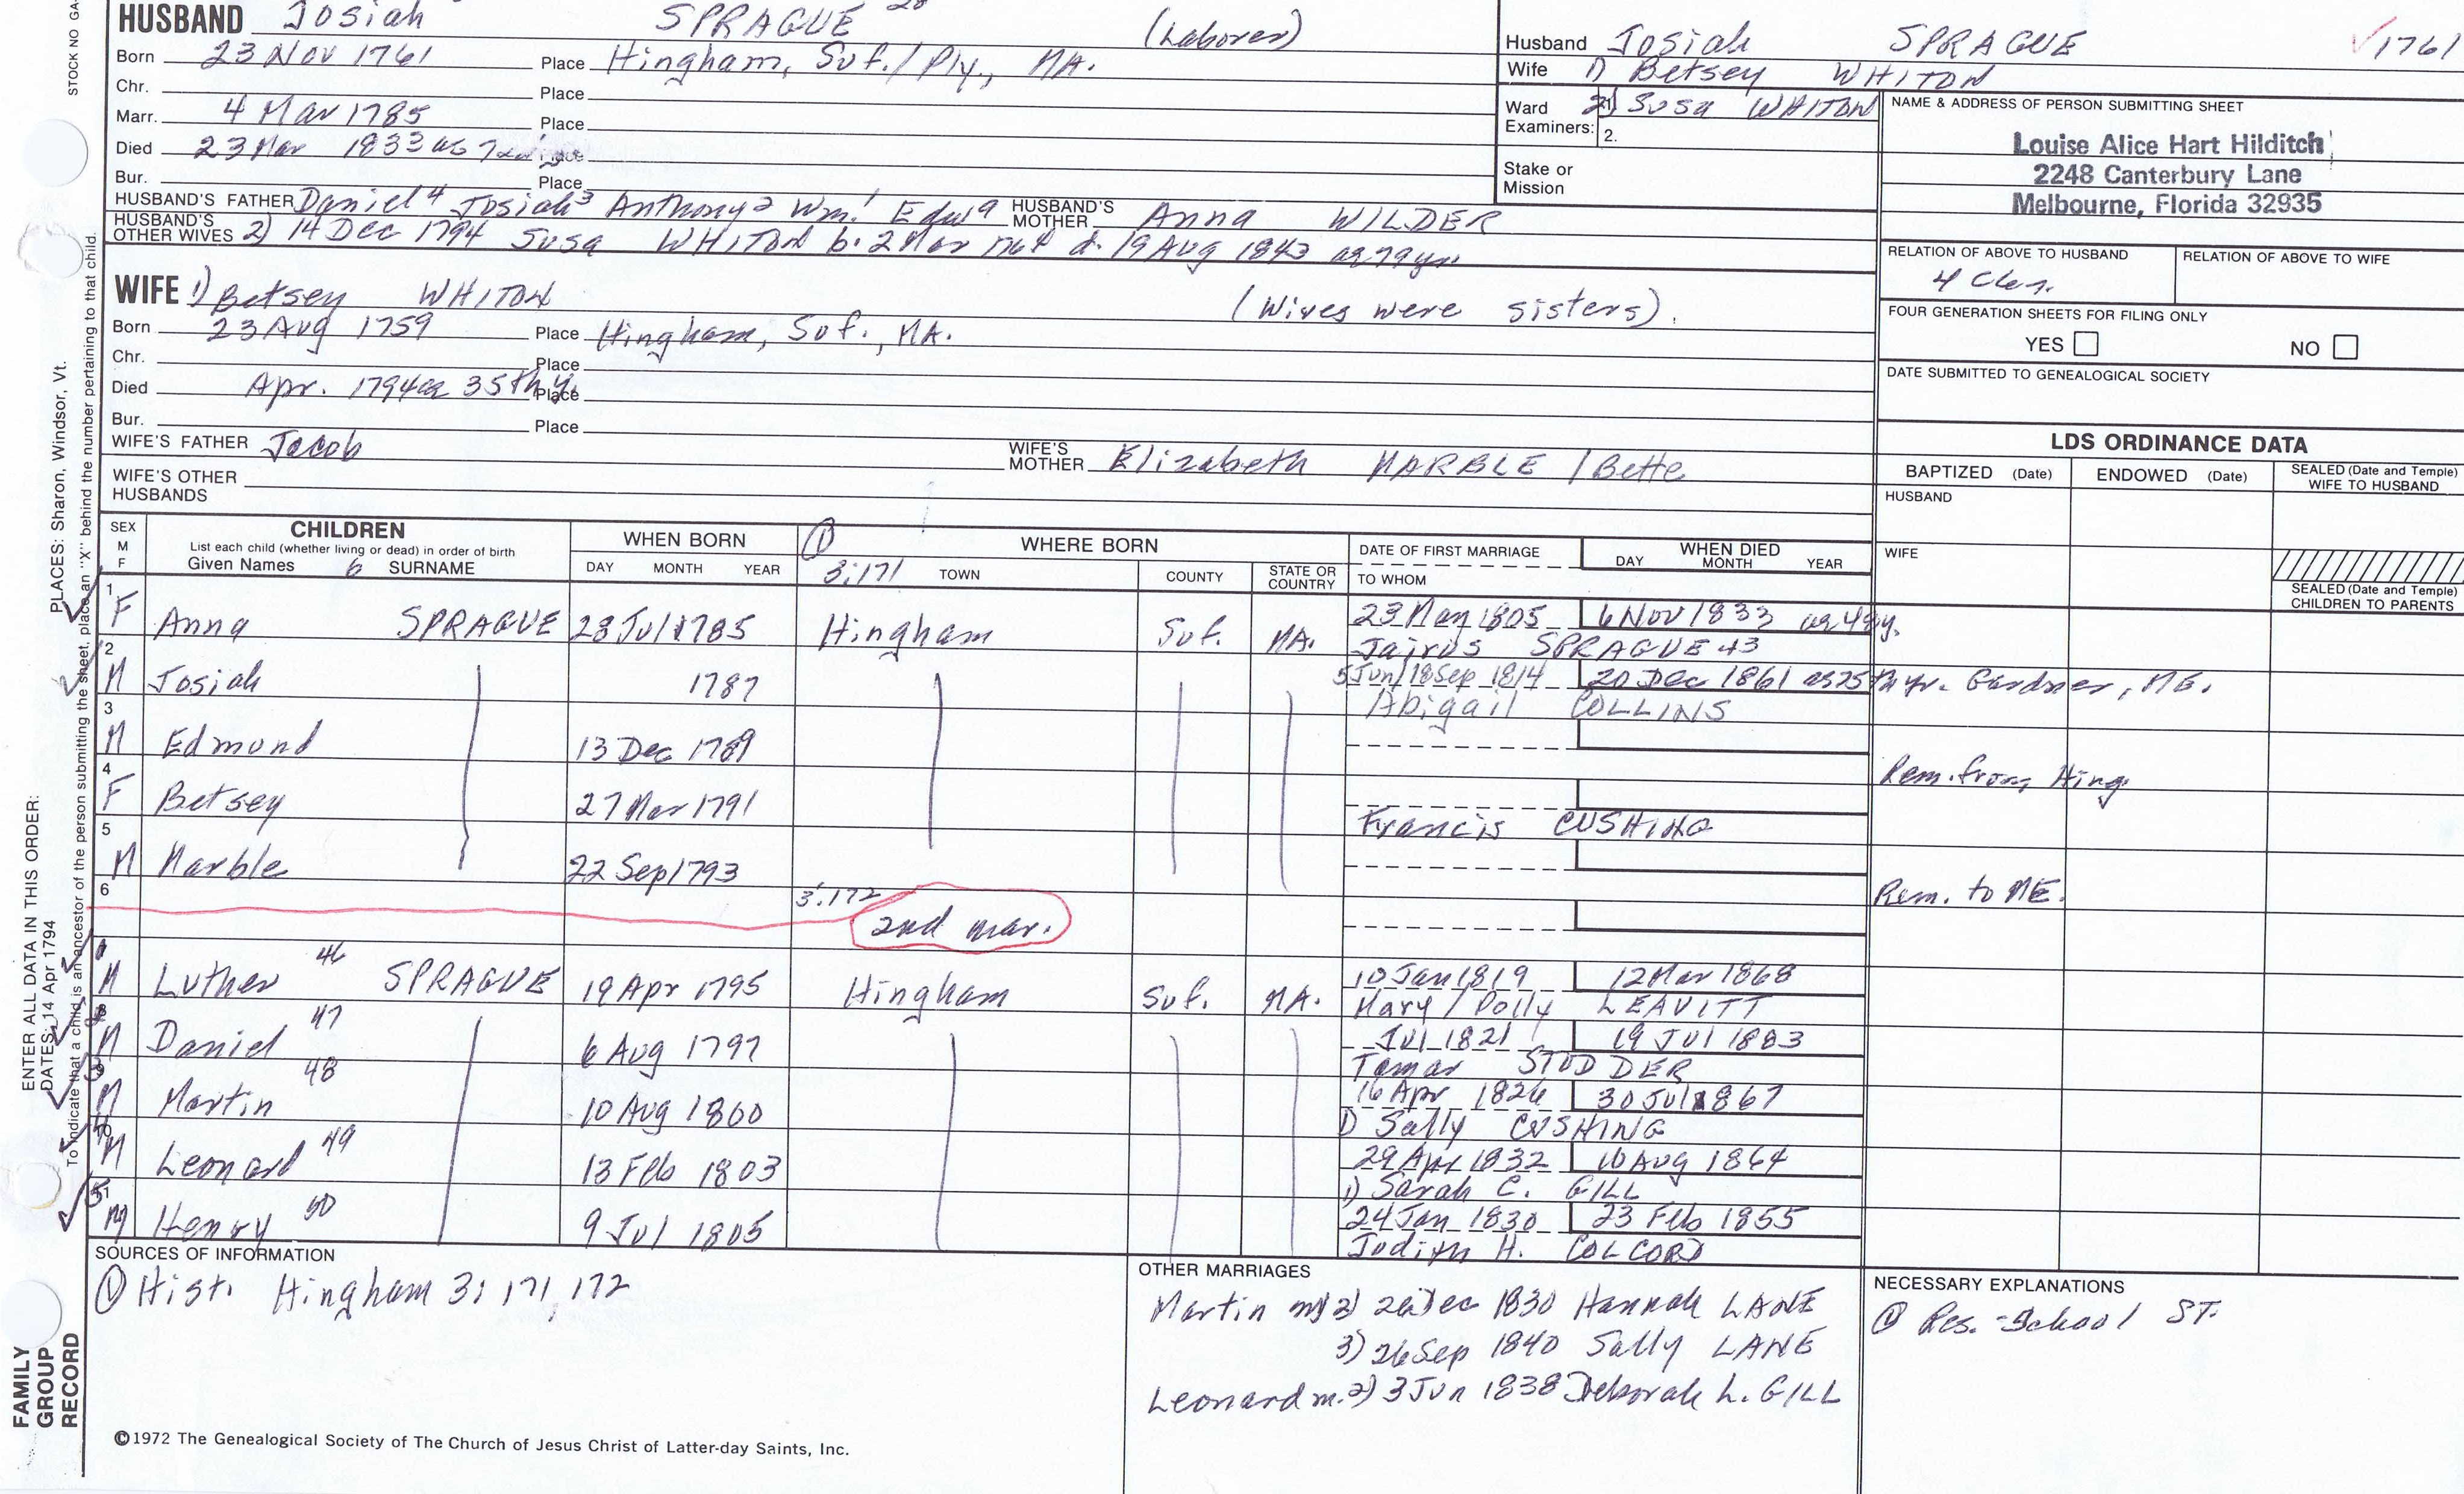 HUSBAND Josiah SPRAGUE 28 (Laborer)
Born 23 Nov 1761 Place Hingham, Suf./Ply., MA.
Chr. Place
Marr. 4 Mar 1785 Place
Died 23 Mar 1833 Place
Bur. Place
HUSBAND'S FATHER Daniel 4 Josiah 3 Anthony 2 Wm. 1 Edwa HUSBAND'S MOTHER Anna WILDER
HUSBAND'S OTHER WIVES 2) 14 Dec 1794 Susa WHITON b. 2 Mar 1764 d. 19 Aug 1843 ae 79 yr.
WIFE 1) Betsey WHITON (Wives were sisters).
Born 23 Aug 1759 Place Hingham, Suf., MA.
Chr. Place
Died Apr. 1794 ae 35th y. Place
Bur. Place
WIFE'S FATHER Jacob WIFE'S MOTHER Elizabeth MARBLE / Bette
WIFE'S OTHER HUSBANDS
Husband Josiah SPRAGUE 1761
Wife 1) Betsey WHITON
Ward 2) Susa WHITON
Examiners: 1. 2.
Stake or Mission
NAME & ADDRESS OF PERSON SUBMITTING SHEET
Louise Alice Hart Hilditch
2248 Canterbury Lane
Melbourne, Florida 32935
RELATION OF ABOVE TO HUSBAND RELATION OF ABOVE TO WIFE
FOUR GENERATION SHEETS FOR FILING ONLY
YES NO
DATE SUBMITTED TO GENEALOGICAL SOCIETY
LDS ORDINANCE DATA
BAPTIZED (Date) ENDOWED (Date) SEALED (Date and Temple) WIFE TO HUSBAND
HUSBAND
WIFE
SEALED (Date and Temple) CHILDREN TO PARENTS
SEX M F CHILDREN WHEN BORN 1 WHERE BORN DATE OF FIRST MARRIAGE WHEN DIED
List each child (whether living or dead) in order of birth
Given Names 6 SURNAME DAY MONTH YEAR 3:171 TOWN COUNTY STATE OR COUNTRY TO WHOM DAY MONTH YEAR
1 F Anna SPRAGUE 28 Jul 1785 Hingham Suf. MA. 23 May 1805 6 Nov 1833 ae 48y.
Jairus SPRAGUE 43
2 M Josiah 1787 5 Jun/18 Sep 1814 20 Dec 1861 Gardner, ME.
Abigail COLLINS
3 M Edmond 13 Dec 1789 Rem. from Hing
4 F Betsey 27 Mar 1791
Francis CUSHING
5 M Marble 22 Sep 1793 Rem. to ME.
6 3:172 2nd mar.
1 M Luther 46 SPRAGUE 19 Apr 1795 Hingham Suf. MA. 10 Jan 1819 12 Mar 1868
Mary / Polly LEAVITT
2 M Daniel 47 6 Aug 1797 Jul 1821 19 Jul 1883
Tamar STODDER
3 M Martin 48 10 Aug 1800 16 Apr 1826 30 Jul 1867
1) Sally CUSHING
4 M Leonard 49 13 Feb 1803 29 Apr 1832 10 Aug 1864
1) Sarah C. GILL
5 M Henry 50 9 Jul 1805 24 Jan 1830 23 Feb 1855
Judith H. COLCORD
SOURCES OF INFORMATION
1 Hist. Hingham 3:171,172
OTHER MARRIAGES
Martin m) 2) 26 Dec 1830 Hannah LANE
3) 26 Sep 1840 Sally LANE
Leonard m. 2) 3 Jun 1838 Deborah L. GILL
NECESSARY EXPLANATIONS
1 Res. - School ST.
©1972 The Genealogical Society of The Church of Jesus Christ of Latter-day Saints, Inc.
STOCK NO GA-
PLACES: Sharon, Windsor, Vt.
ENTER ALL DATA IN THIS ORDER:
DATES: 14 Apr 1794
To indicate that a child is an ancestor of the person submitting the sheet, place an "X" behind the number pertaining to that child.
FAMILY GROUP RECORD